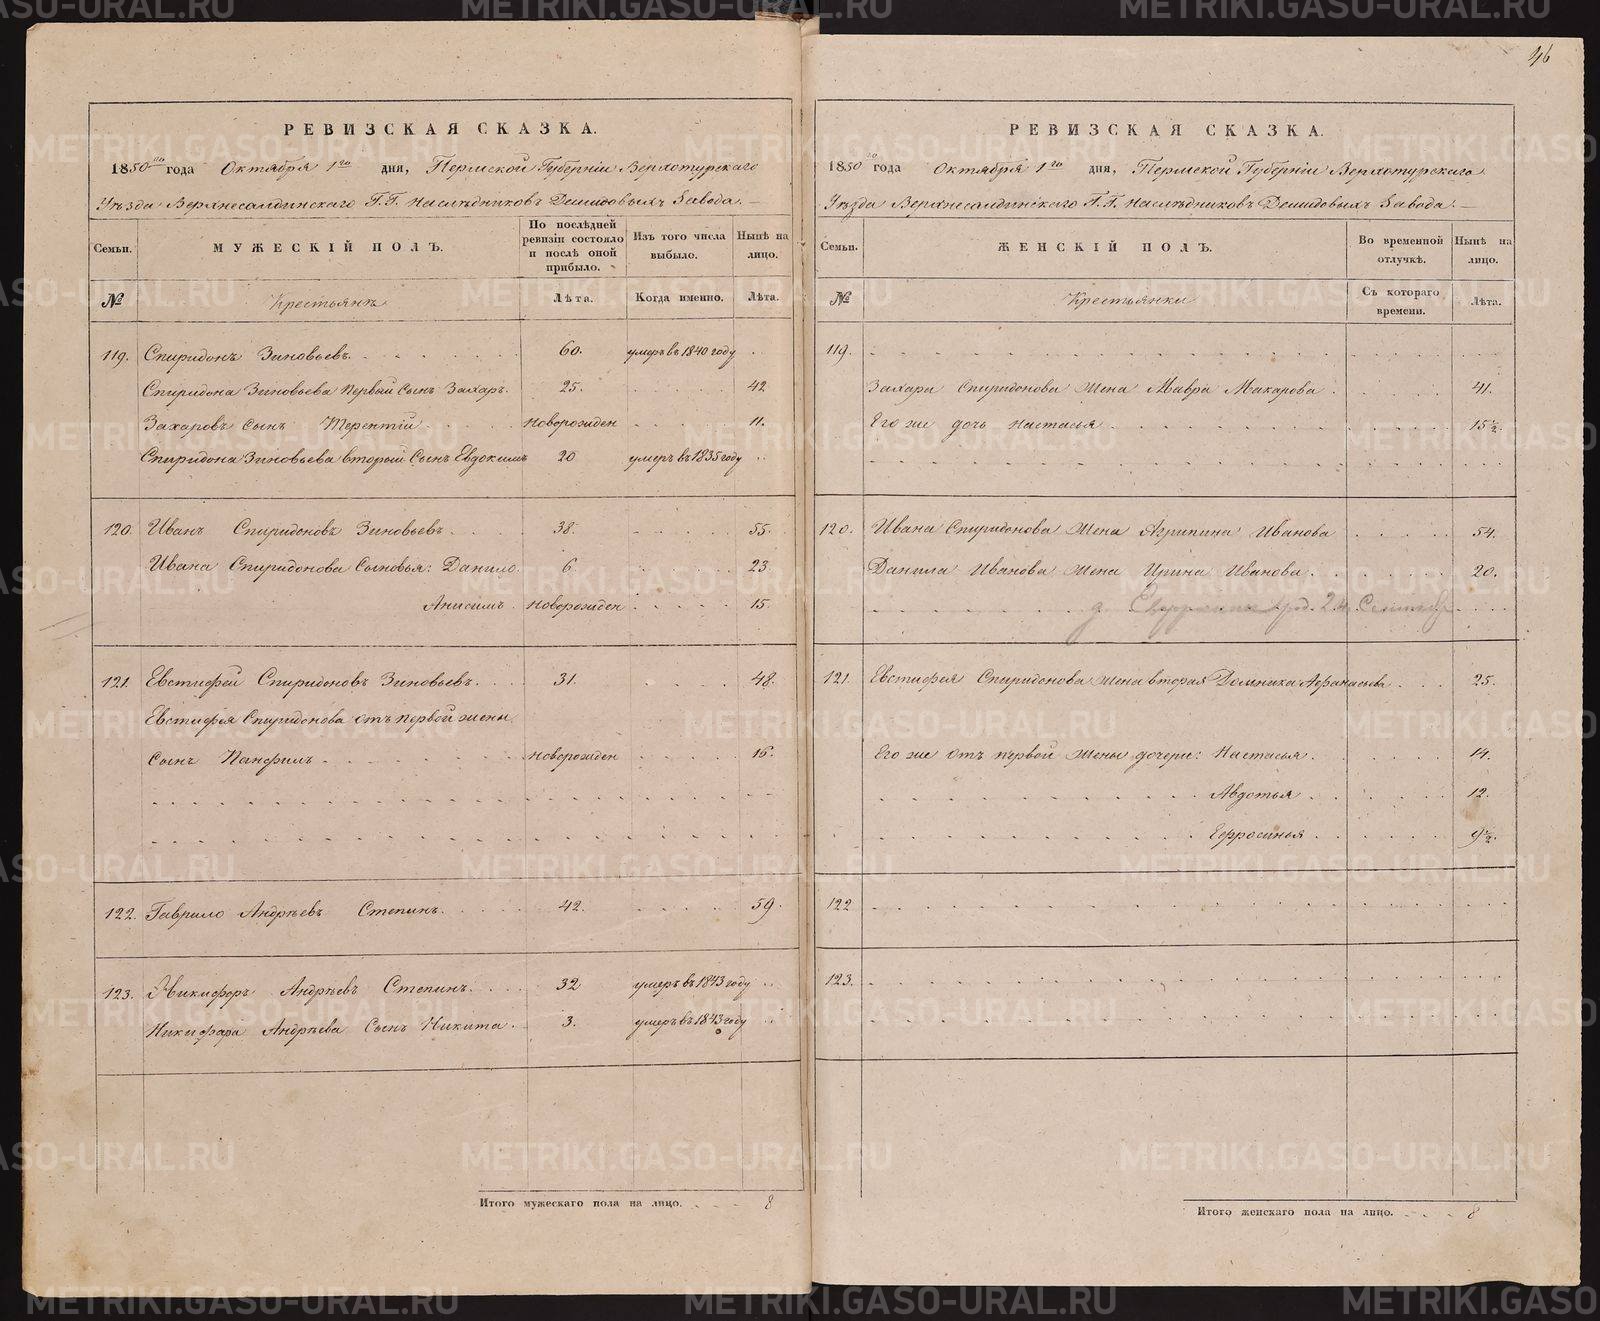 46
РЕВИЗСКАЯ СКАЗКА.
1850го года Октября 1го дня, Пермской Губерніи Верхотурскаго
Уѣзда Верхнесалдинскаго Г.Г. Наслѣдниковъ Демидовыхъ Завода.
Семьи. МУЖЕСКІЙ ПОЛЪ. По послѣдней ревизіи состояло и послѣ оной прибыло. Изъ того числа выбыло. Нынѣ на лицо.
№ Крестьянъ Лѣта. Когда именно. Лѣта.
119. Спиридонъ Зиновьевъ. 60. умеръ въ 1840 году
Спиридона Зиновьева первый сынъ Захаръ. 25. 42
Захаровъ сынъ Терентій новорожден 11.
Спиридона Зиновьева второй сынъ Евдокимъ 20 умеръ въ 1835 году
120. Иванъ Спиридоновъ Зиновьевъ. 38. 55.
Ивана Спиридонова сыновья: Данило. 6 23.
Анисимъ. новорожден 15.
121. Евстифей Спиридоновъ Зиновьевъ. 31. 48.
Евстифея Спиридонова отъ первой жены
сынъ Панфилъ новорожден 16.
122. Гаврило Андрѣевъ Степинъ. 42. 59.
123. Никифоръ Андрѣевъ Степинъ. 32 умеръ въ 1843 году
Никифора Андрѣева сынъ Никита. 3. умеръ въ 1843 году
Итого мужескаго пола на лицо. 8
РЕВИЗСКАЯ СКАЗКА.
1850го года Октября 1го дня, Пермской Губерніи Верхотурскаго
Уѣзда Верхнесалдинскаго Г.Г. Наслѣдниковъ Демидовыхъ Завода.
Семьи. ЖЕНСКІЙ ПОЛЪ. Во временной отлучкѣ. Нынѣ на лицо.
№ Крестьянки Съ котораго времени. Лѣта.
119.
Захара Спиридонова жена Мавра Макарова. 41.
Его же дочь Настасья 15½.
120. Ивана Спиридонова жена Агрипина Иванова 54.
Данила Иванова жена Ирина Иванова. 20.
121. Евстифея Спиридонова жена вторая Домника Афанасьева 25.
Его же отъ первой жены дочери: Настасья. 14.
Авдотья 12.
Ефросинья 9½.
122
123.
Итого женскаго пола на лицо. 8
METRIKI.GASO-URAL.RU